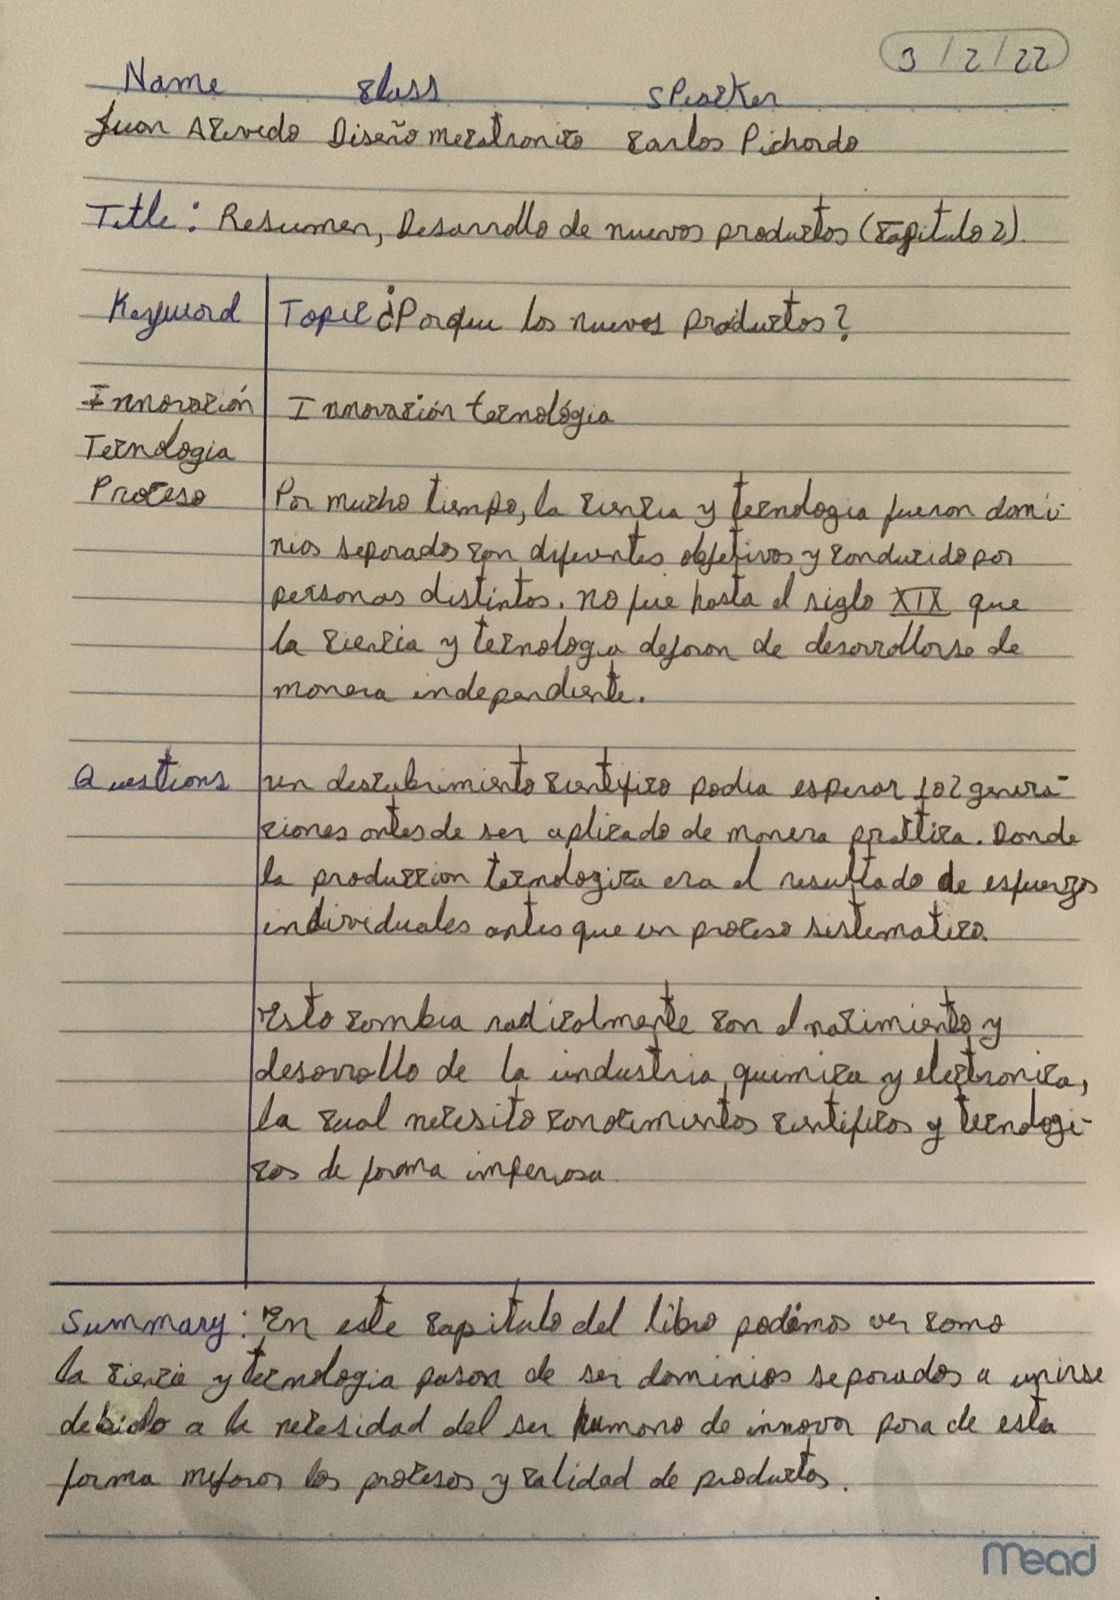 3/2/22
Name Class Speacker
Juan Acevedo Diseño Mecatronico Carlos Pichardo
Title: Resumen, Desarrollo de nuevos productos (Capitulo 2).
Keyword Topic ¿Porque los nuevos productos?
Innovación Innovación tecnológia
Tecnologia
Proceso Por mucho tiempo, la ciencia y tecnologia fueron domi-
nios separados con diferentes objetivos y conducido por
personas distintos. no fue hasta el siglo XIX que
la ciencia y tecnologia dejaron de desarrollarse de
manera independiente.
Questions un descubrimiento cientifico podia esperar 1 o 2 genera-
ciones antes de ser aplicado de manera practica. Donde
la produccion tecnologica era el resultado de esfuerzos
individuales antes que un proceso sistematico.
Esto cambia radicalmente con el nacimiento y
desarrollo de la industria quimica y electronica,
la cual necesito conocimientos cientificos y tecnologi-
cos de forma imperiosa.
Summary: En este capitulo del libro podemos ver como
la ciencia y tecnologia pasan de ser dominios separados a unirse
debido a la necesidad del ser humano de innovar para de esta
forma mejorar los procesos y calidad de productos.
Mead